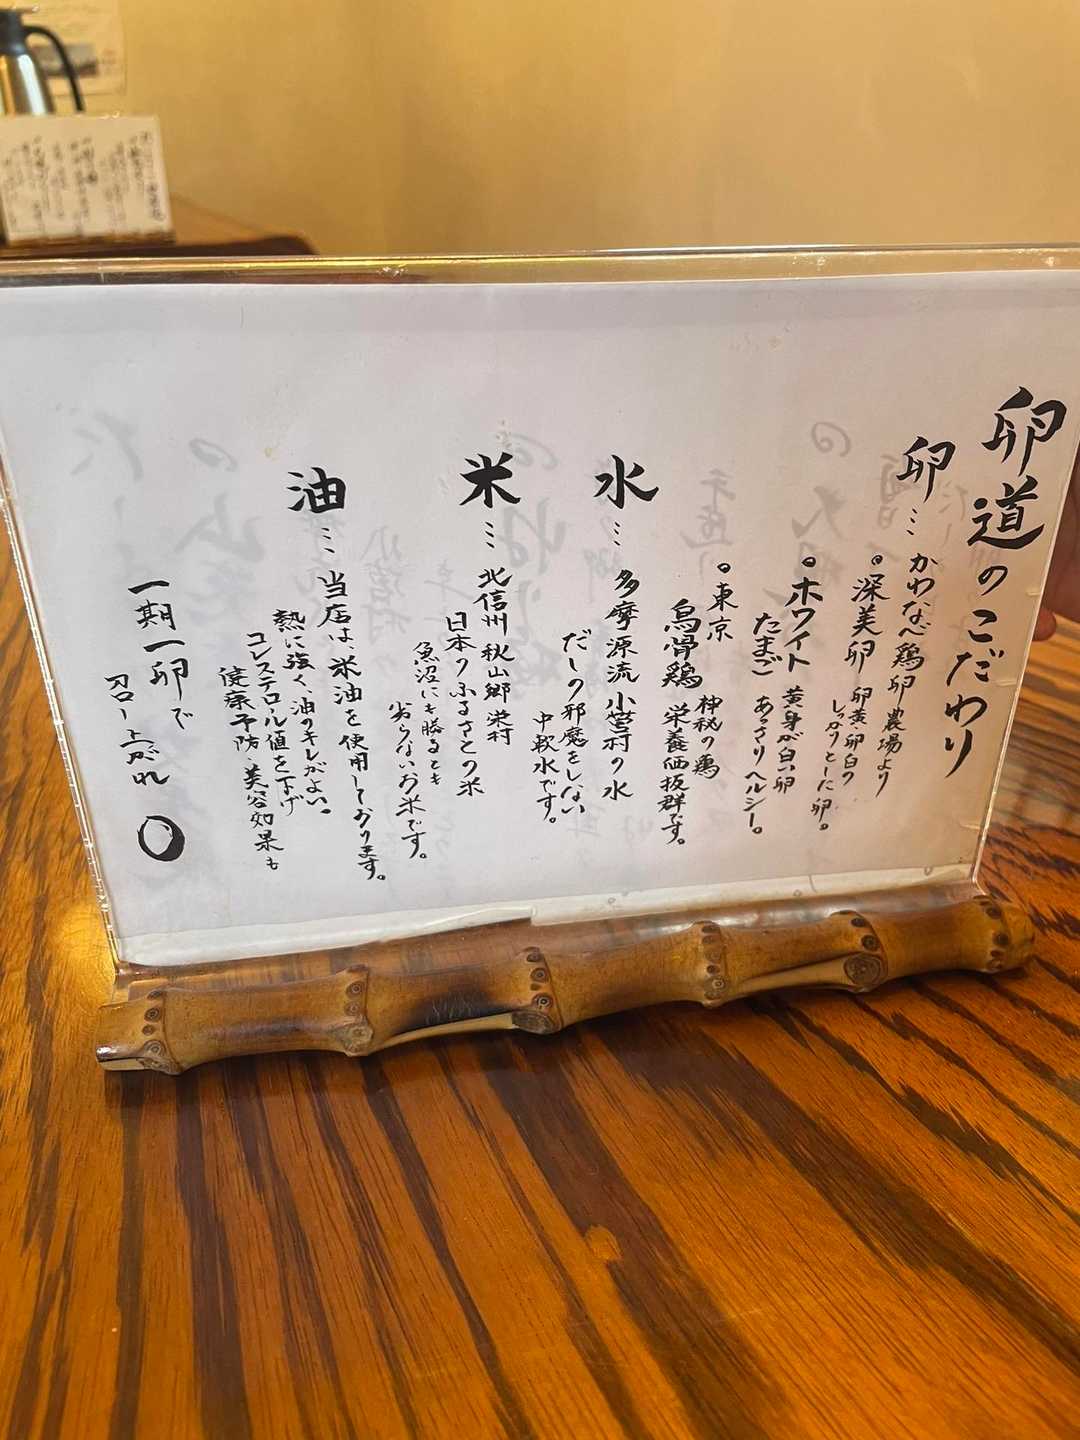 卵道のこだわり
卵…かわなべ鶏卵農場より
・深美卵 卵黄卵白の
しっかりとした卵。
・ホワイト
たまご
黄身が白い卵
あっさりヘルシー。
・東京
烏骨鶏
神秘の鶏
栄養価抜群です。
水…多摩源流小菅村の水
だしの邪魔をしない
中軟水です。
米…北信州秋山郷栄村
日本のふるさとの米
魚沼にも勝るとも
劣らないお米です。
油…当店は、米油を使用しております。
熱に強く、油のキレがよい。
コレステロール値を下げ
健康予防、美容効果も
一期一卵で
召し上がれ